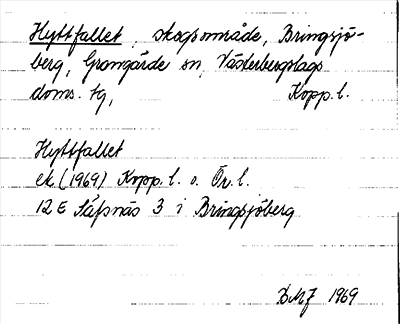 Hyttfallet, skogsområde, Bringsjö-
berg, Grangärde sn, Västerbergslags
doms. tg, Kopp. l.
Hyttfallet
ek (1969) Kopp. l. o. Ör. l.
12E Säfsnäs 3 i Bringsjöberg
1969